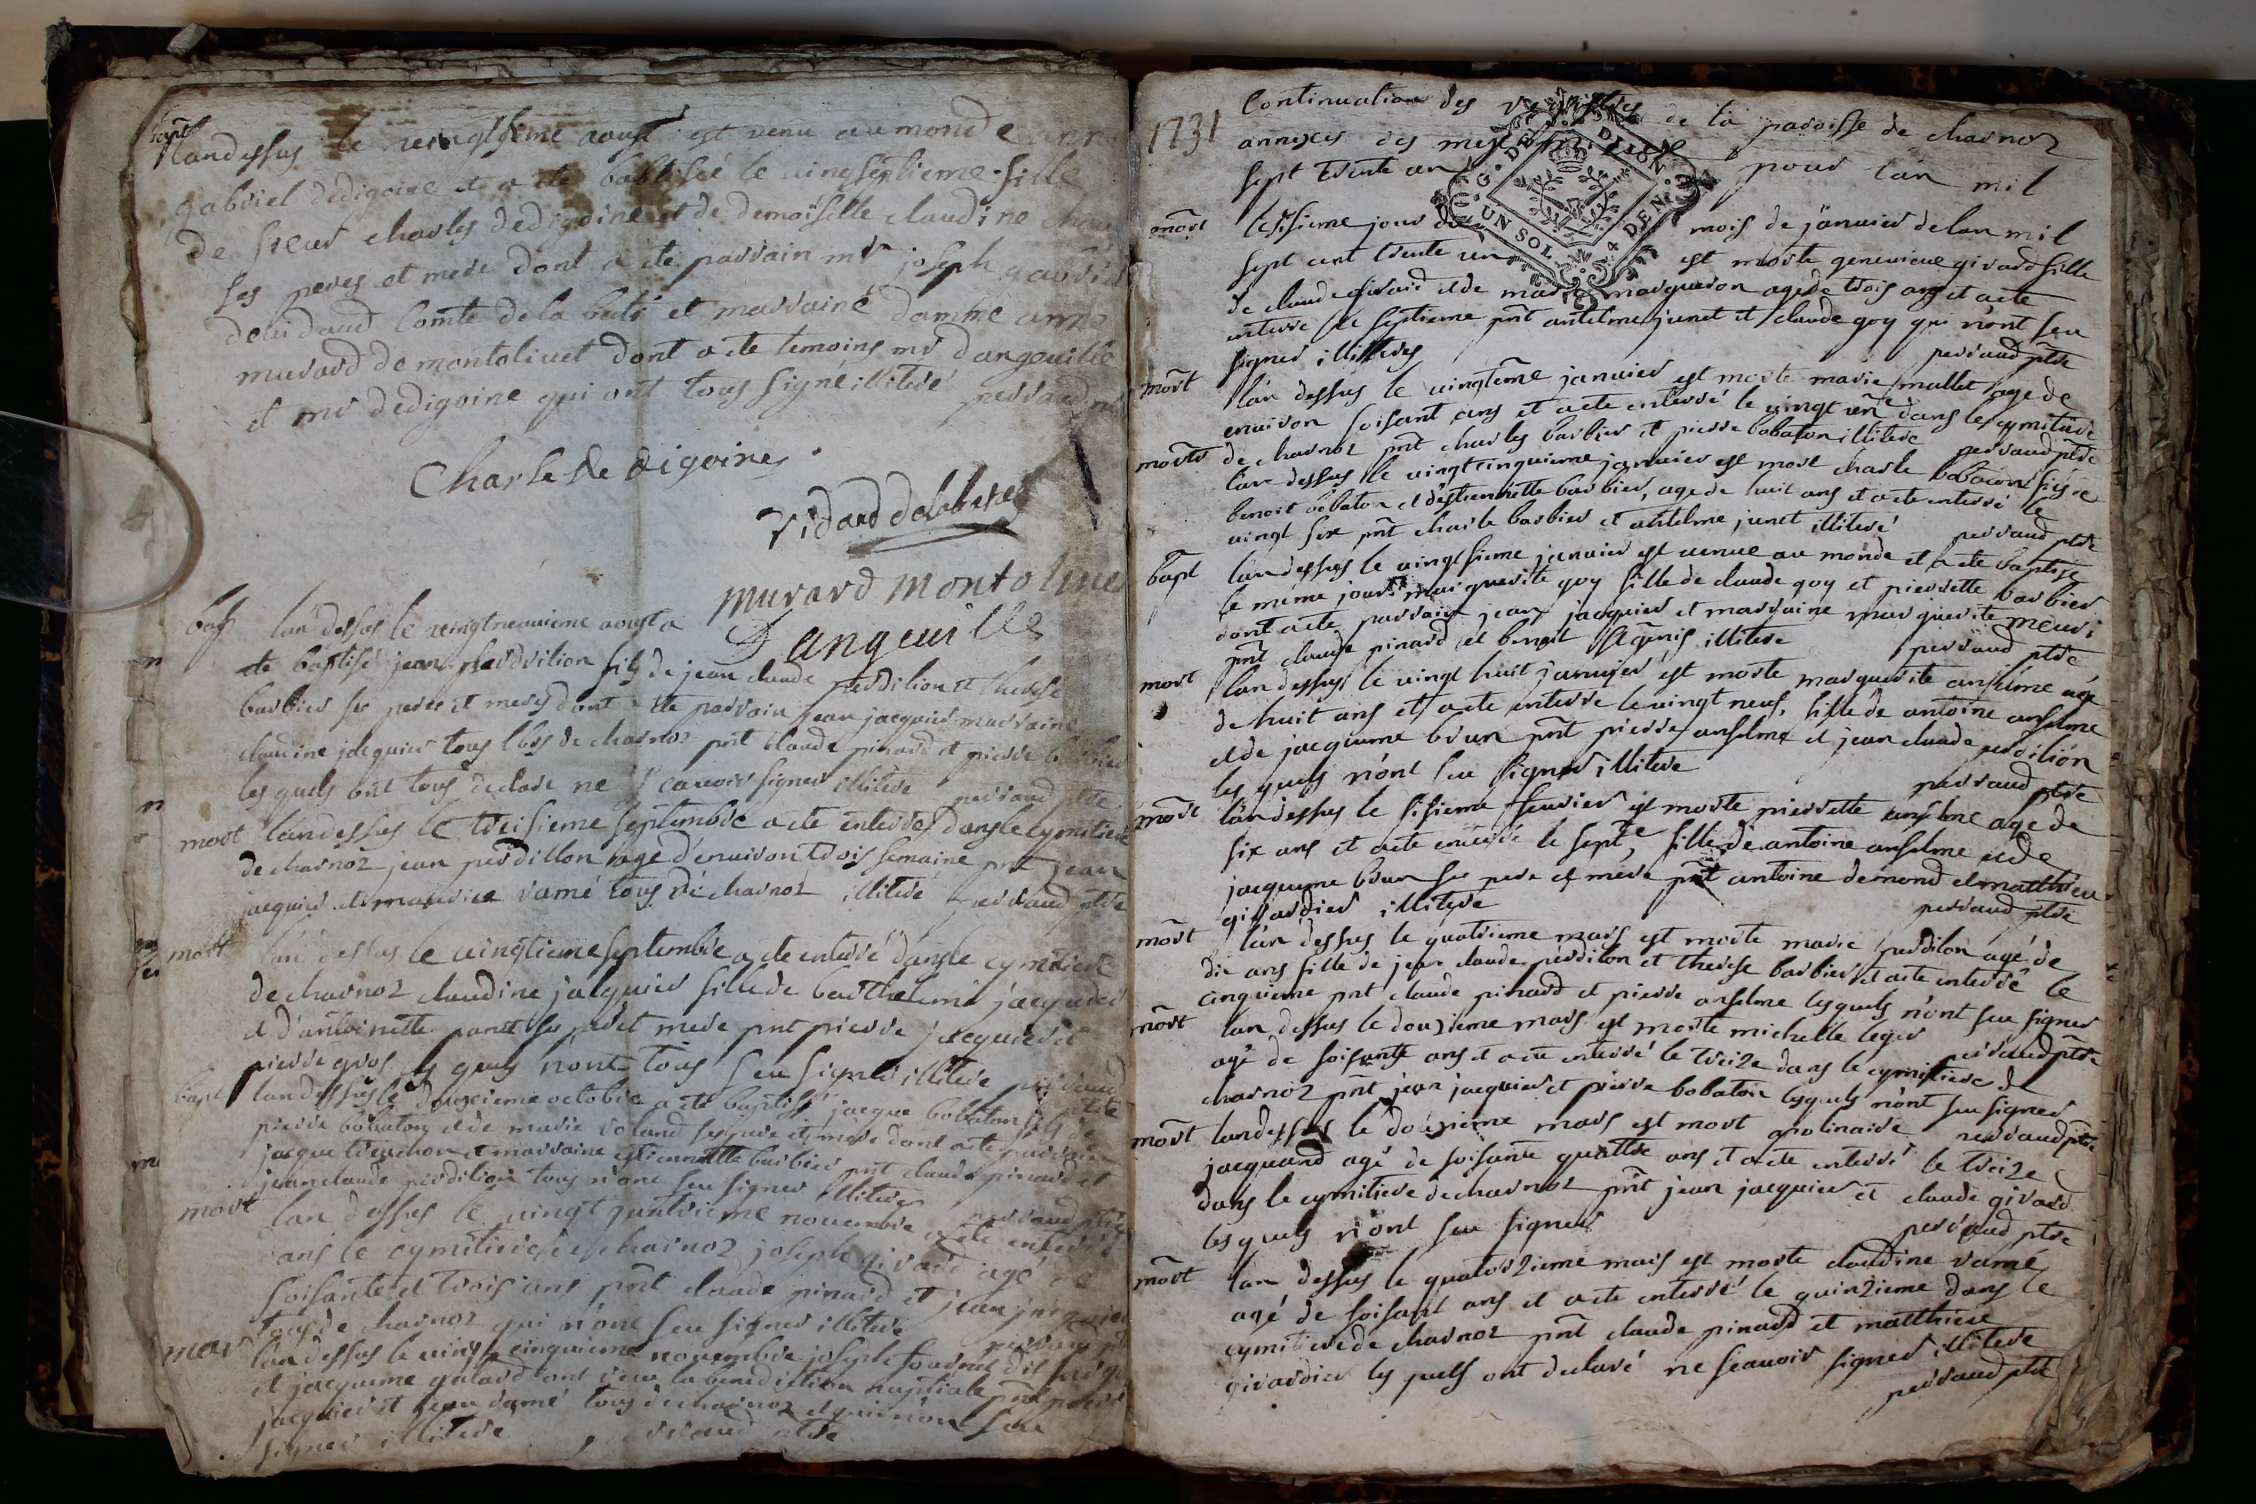 bapt
landessus le veingtsieme aoust est venu au monde
gabriel dedigoine et a ete babtisé le vinetseptieme fille
de sieur charles dedigoine et de demoiselle claudine
ses peres et mere dont a ete parrain mr joseph gabriel
devidaud Comte de la batie et marraine damme anne
murard de montoliuet dont a ete temoins mr dangeuille
et mr dedigoine qui ont tous signé illiteré perraud
Charle de digoine
vidaud delabatie
murard montoliue
Dangeuille
bap lan dessus le veingtneuuieme aoust a
ete baptisé jean perdrilion fils de jean claude perdilion et therese
barbier ses peres et meres dont a ete parrain jean jacquier marraine
claudine jacquier tous lros de charnoz pnt claude pinard et pierre barbier
les quels ont tous declare ne scauoir signer illitere perraud ptre
mort landessus le treisieme septembre a ete interre dans le cymitiere
de charnoz jean perdillon age d'enuiron trois semaine pnt jean
jacquier et maurice ramé tous de charnoz illiteré perraud ptre
mort lan dessus le vingtieme septembre a ete interré dans le cymitiere
de charnoz claudine jacquier fille de barthelemi jacquier
et d'antoinette panet ses pere et mere pnt pierre jacquier et
pierre gros les quels n'ont tous seu signer illitere perraud ptre
bapt lan dessus le douzieme octobre a ete baptisé jacque bobaton fils de
pierre bobaton et de marie roland ses pere et mere dont a ete parrain
jacque treuchon et marraine estiennette barbier pnt claude pinard et
jean claude perdilion tous n'ont seu signer illitere perraud ptre
mort lan dessus le vingt quatrieme nouembre a ete enterré
dans le cymitiere de charnoz joseph girard agé de
soisante et trois ans pnt claude pinard et jean jacquier
tous de charnoz qui n'ont seu signer illitere perraud
mar lan dessus le vingt cinquieme nouembre joseph fournet dit
et jacqueme galard ont receu la benediction nuptiale pnt pierre
jacquier et jean ramé tous de charnoz et qui n'ont seu
signer illitere perraud ptre
1731 Continuation des registres de la paroisse de charnoz
annexes des mex pour lan mil
sept trente un
G. DE DIJON. UN SOL. 4 DEN.
mort le sisieme jour du mois de januier de lan mil
sept cent trente un est morte geneuieue girard fille
de claude girard et de marie marqueron agé de trois ans et a ete
interre le septieme pnt antelme junet et claude goy qui n'ont seu
signer illitteres perraud ptre
mort lan dessus le vingtême januier est morte marie mallet agé de
enuiron soisant ans et a ete enterré le vingt un dans le cymitiere
de charnoz pnt charles barbier et pierre bobaton illitere perraud ptre
mort lan dessus le vingtcinquieme januier est mort charle bobaton fils de
benoit bobaton et destiennette barbier, age de huit ans et a ete interré le
vingt six pnt charle barbier et antelme junet illiteré perraud ptre
bapt lan dessus le vingtsieme januier est venue au monde et a ete baptisé
le meme jour marguerite goy fille de claude goy et pierrette barbier
dont a ete parrain jean jacquier et marraine marguerite meuri
pnt claude pinard et benoit st genis illitere perraud ptre
mort lan dessus le vingt huit januier est morte marguerite anselme agé
de huit ans et a ete interre le vingt neuf, fille de antoine anselme
et de jacqueme brun pnt pierre anselme et jean claude perdilion
les quels n'ont seu signer illitere perraud ptre
mort lan dessus le sisieme feurier est morte pierrette anselme agé de
six ans et a ete enterré le septe, fille de antoine anselme et de
jacqueme brun ses pere et mere pnt antoine demond et matthieu
girardier illitere perraud ptre
mort lan dessus le quatrieme mars est morte marie perdilon agé de
dix ans fille de jean claude perdilon et therese barbier et a ete interré le
cinquieme pnt claude pinard et pierre anselme lesquels n'ont seu signer
mort lan dessus le douzieme mars est morte michelle leger perraud ptre
agé de soisante ans et a ete interré le treize dans le cymitiere de
charnoz pnt jean jacquier et pierre bobaton lesquels n'ont seu signer
mort landessus le douzieme mars est mort apolinaire perraud ptre
jacquand agé de soisante quattre ans et a ete interré le treize
dans le cymitiere de charnoz pnt jean jacquier et claude girard
les quels n'ont seu signer perraud ptre
mort lan dessus le quatorzieme mars est morte claudine ramé
agé de soisant ans et a ete interré le quinzieme dans le
cymitiere de charnoz pnt claude pinard et matthieu
girardier les quels ont declaré ne scauoir signer illitere
perraud ptre